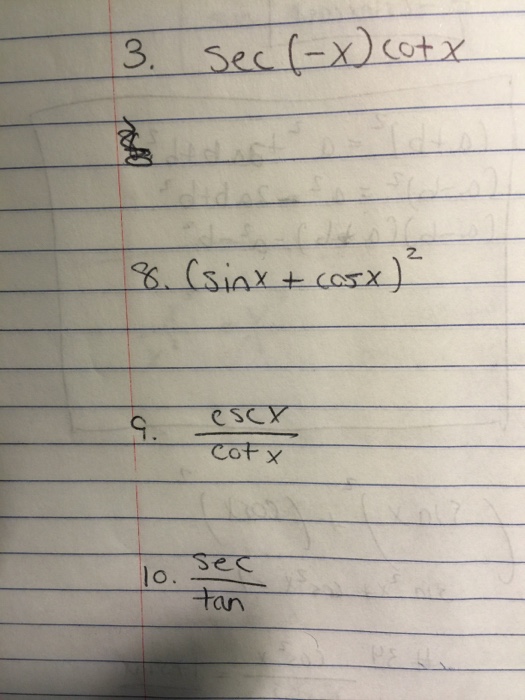 3. sec(-x) cotx
8. (sinx + cosx)²
9. cscx
cotx
10. sec
tan